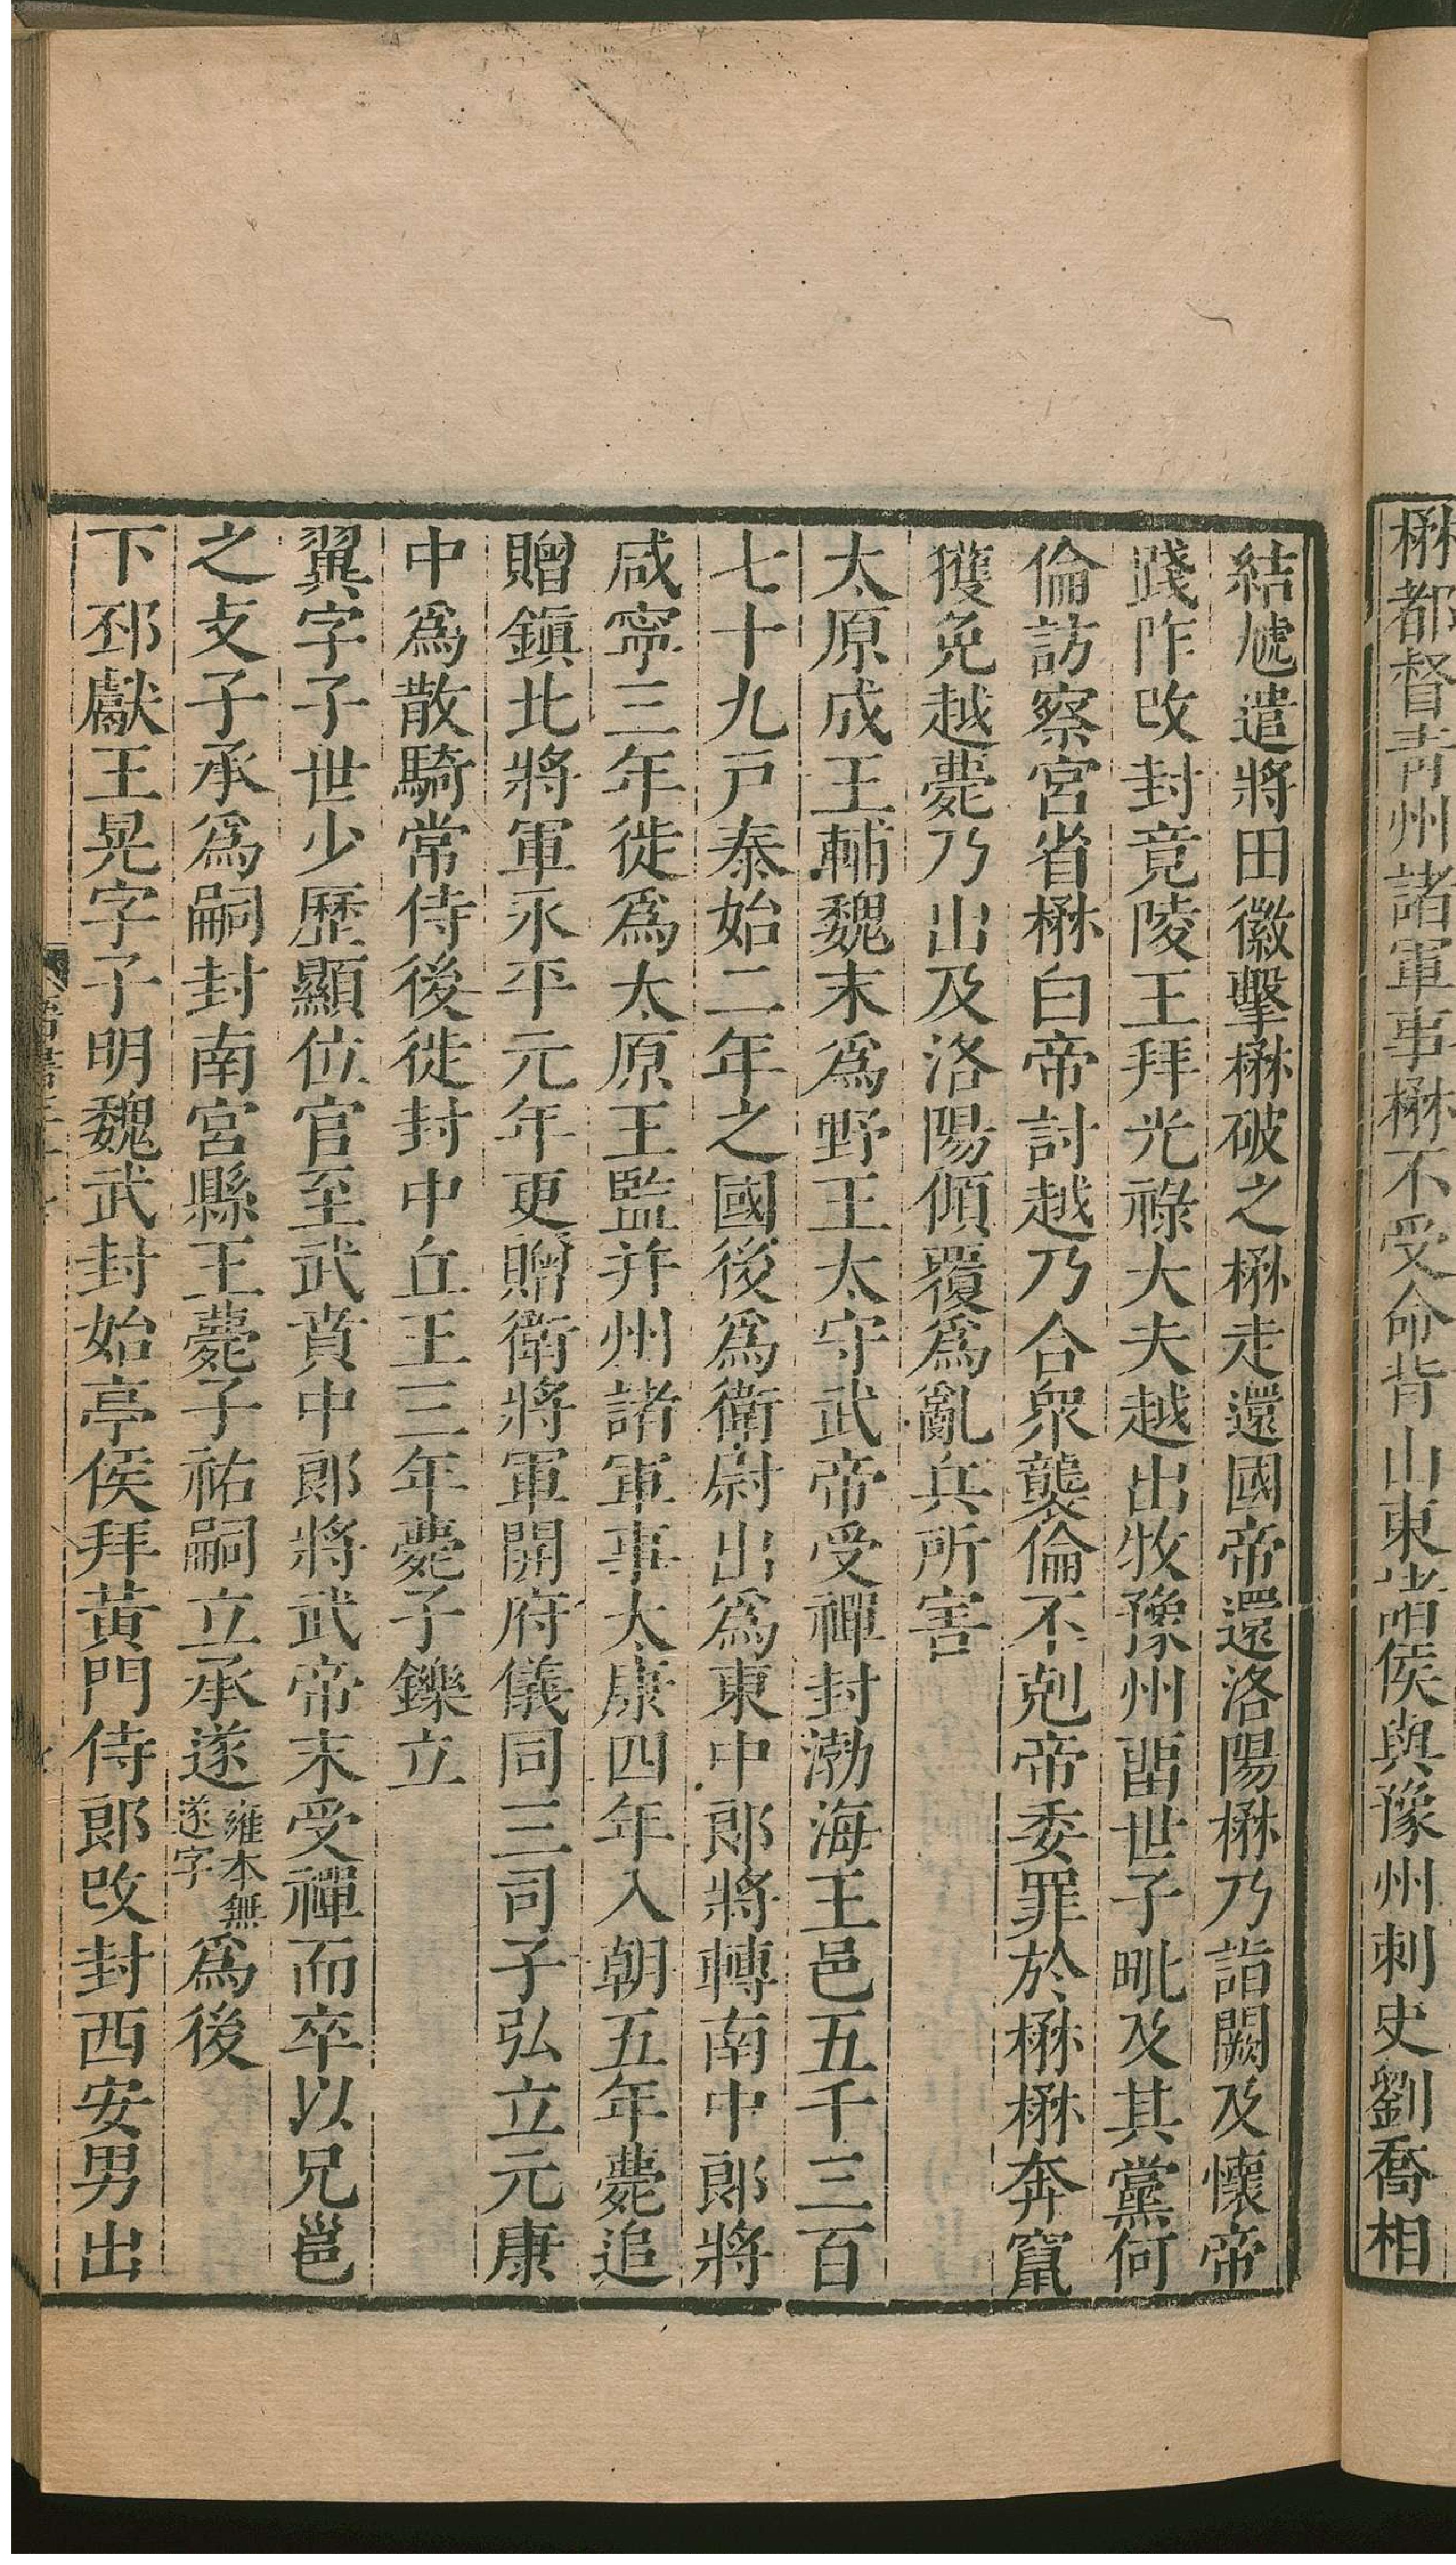 楙都督青州諸軍事楙不受命背山東諸侯與豫州刺史劉喬相
結虓遣將田徽擊楙破之楙走還國帝還洛陽楙乃詣闕及懷帝
踐阼改封竟陵王拜光祿大夫越出牧豫州畱世子毗及其黨何
倫訪察宮省楙白帝討越乃合衆襲倫不剋帝委罪於楙楙奔竄
獲免越薨乃出及洛陽傾覆爲亂兵所害
太原成王輔魏末爲野王太守武帝受禪封渤海王邑五千三百
七十九戸泰始二年之國後爲衛尉出爲東中郎將轉南中郎將
咸寧三年徙爲太原王監并州諸軍事太康四年入朝五年薨追
贈鎮北將軍永平元年更贈衛將軍開府儀同三司子弘立元康
中爲散騎常侍後徙封中丘王三年薨子鑠立
翼字子世少歷顯位官至武賁中郎將武帝末受禪而卒以兄邕
之攴子承爲嗣封南宮縣王薨子祐嗣立承遂雍本無遂字爲後
下邳獻王晃字子明魏武封始亭侯拜黃門侍郎改封西安男出